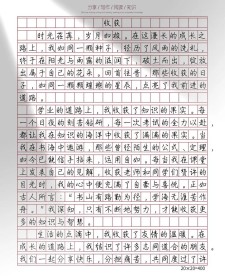 收获
时光荏苒，岁月如梭。在这漫长的成长之
路上，我如同一颗种子，经历了风雨的洗礼，
终于在阳光与雨露的滋润下，破土而出，绽放
出属于自己的花朵。回首往昔，那些收获的日
子，如同一颗颗璀璨的星辰，点亮了我前进的
道路。
学业的道路上，我收获了知识的果实。每
一个日夜的刻苦钻研，每一次考试的全力以赴
都让我在知识的海洋中收获了满满的果实。当
我在书海中遨游，那些曾经陌生的公式、定理
如今已能信手拈来，运用自如。每当我在课堂
上发表自己的见解，收获老师和同学们赞许的
目光时，我的心中便充满了自豪与喜悦。正如
古人所言："书山有路勤为径，学海无涯苦作
舟。"我深知，只有不断地努力，才能收获更
多的知识与智慧。
生活的点滴中，我收获了友情的温暖。在
成长的道路上，我结识了许多志同道合的朋友
我们一起分享快乐，分担痛苦，一共同度过了
20×20=400